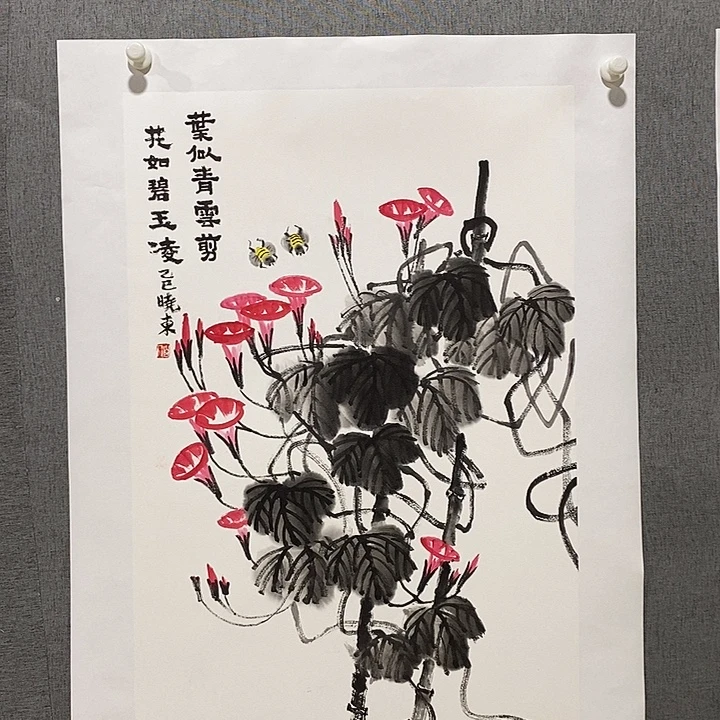 葉似青雲剪
花如碧玉凌
乙巳曉東